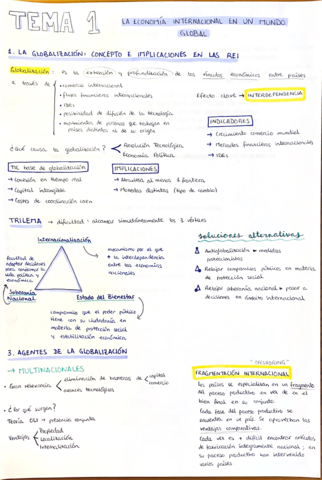 TEMA 1
LA ECONOMÍA INTERNACIONAL EN UN MUNDO
GLOBAL
1. LA GLOBALIZACIÓN: CONCEPTO E IMPLICACIONES EN LAS REI
Globalización: es la extensión y profundización de los vínculos económicos entre países
a través de
• comercio internacional
• flujos financieros internacionales
• IDEs
• proximidad de difusión de la tecnología
• movimientos de personas que trabajan en
países distintos al de su origen
Efecto clave → INTERDEPENDENCIA
INDICADORES
→ Crecimiento comercio mundial
→ Mercados financieros internacionales
→ IDEs
¿Qué causa la globalización?
Revolución Tecnológica
Economía Política
TIC base de globalización
→ Conexión en tiempo real
→ Capital intangible
→ Costes de coordinación caen
IMPLICACIONES
→ Atravesia al menos 1 frontera
→ Monedas distintas (tipo de cambio)
TRILEMA → dificultad: alcanzar simultáneamente los 3 vértices
Internacionalización
mecanismo por el que
↑ la interdependencia
entre las economías
nacionales
facultad de
adoptar decisiones
para conformar la
vida política y
económica
Soberanía
Nacional
Estado del Bienestar
compromiso que el poder público
tiene con su ciudadanía en
materia de protección social
y estabilización económica
Soluciones alternativas
1 Antiglobalización → medidas
proteccionistas
2 Relajar compromisos públicos en materia
de protección social
3 Relajar soberanía nacional → pasar a
decisiones en ámbito internacional
3. AGENTES DE LA GLOBALIZACIÓN
→ MULTINACIONALES
• Gran relevancia
eliminación de barreras de
capital
comercio
avances tecnológicos
• ¿Por qué surgen?
Teoría OLI → presencia conjunta
Ventajas
Propiedad
Localización
Internalización
"OFFSHORING"
FRAGMENTACIÓN INTERNACIONAL
Los países se especializan en un fragmento
del proceso productivo en vez de en el
bien final en su conjunto.
Cada fase del proceso productivo se
encuentra en un país. Se aprovechan las
ventajas comparativas.
Cada vez es + difícil encontrar artículos
de fabricación íntegramente nacional; en
su proceso productivo han intervenido
varios países